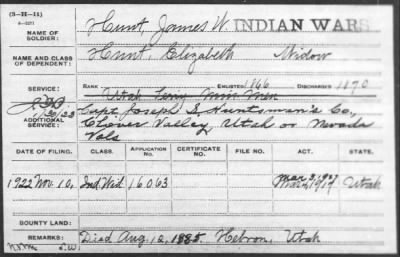 (3-H-11)
NAME OF SOLDIER: Hunt, James W. INDIAN WARS
NAME AND CLASS OF DEPENDENT: Hunt, Elizabeth Widow
SERVICE: RANK ENLISTED 1866 DISCHARGED 1870
Utah Terr Min Men
ADDITIONAL SERVICE: Capt. Joseph S. Huntsman's Co,
Clover Valley, Utah or Nevada
Vols
DATE OF FILING. CLASS. APPLICATION NO. CERTIFICATE NO. FILE NO. ACT. STATE.
Mar 3, 1927
1922 Nov. 10, Ind Wid 16063 Mar 4, 1917 Utah
BOUNTY LAND:
REMARKS: Died Aug. 12, 1885. Hebron, Utah